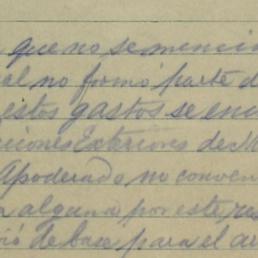 que no se menci
al no formó parte d
estos gastos se enc
ciones Exteriores de M
Apoderado no conven
alguna por este res
ió de base para el ar